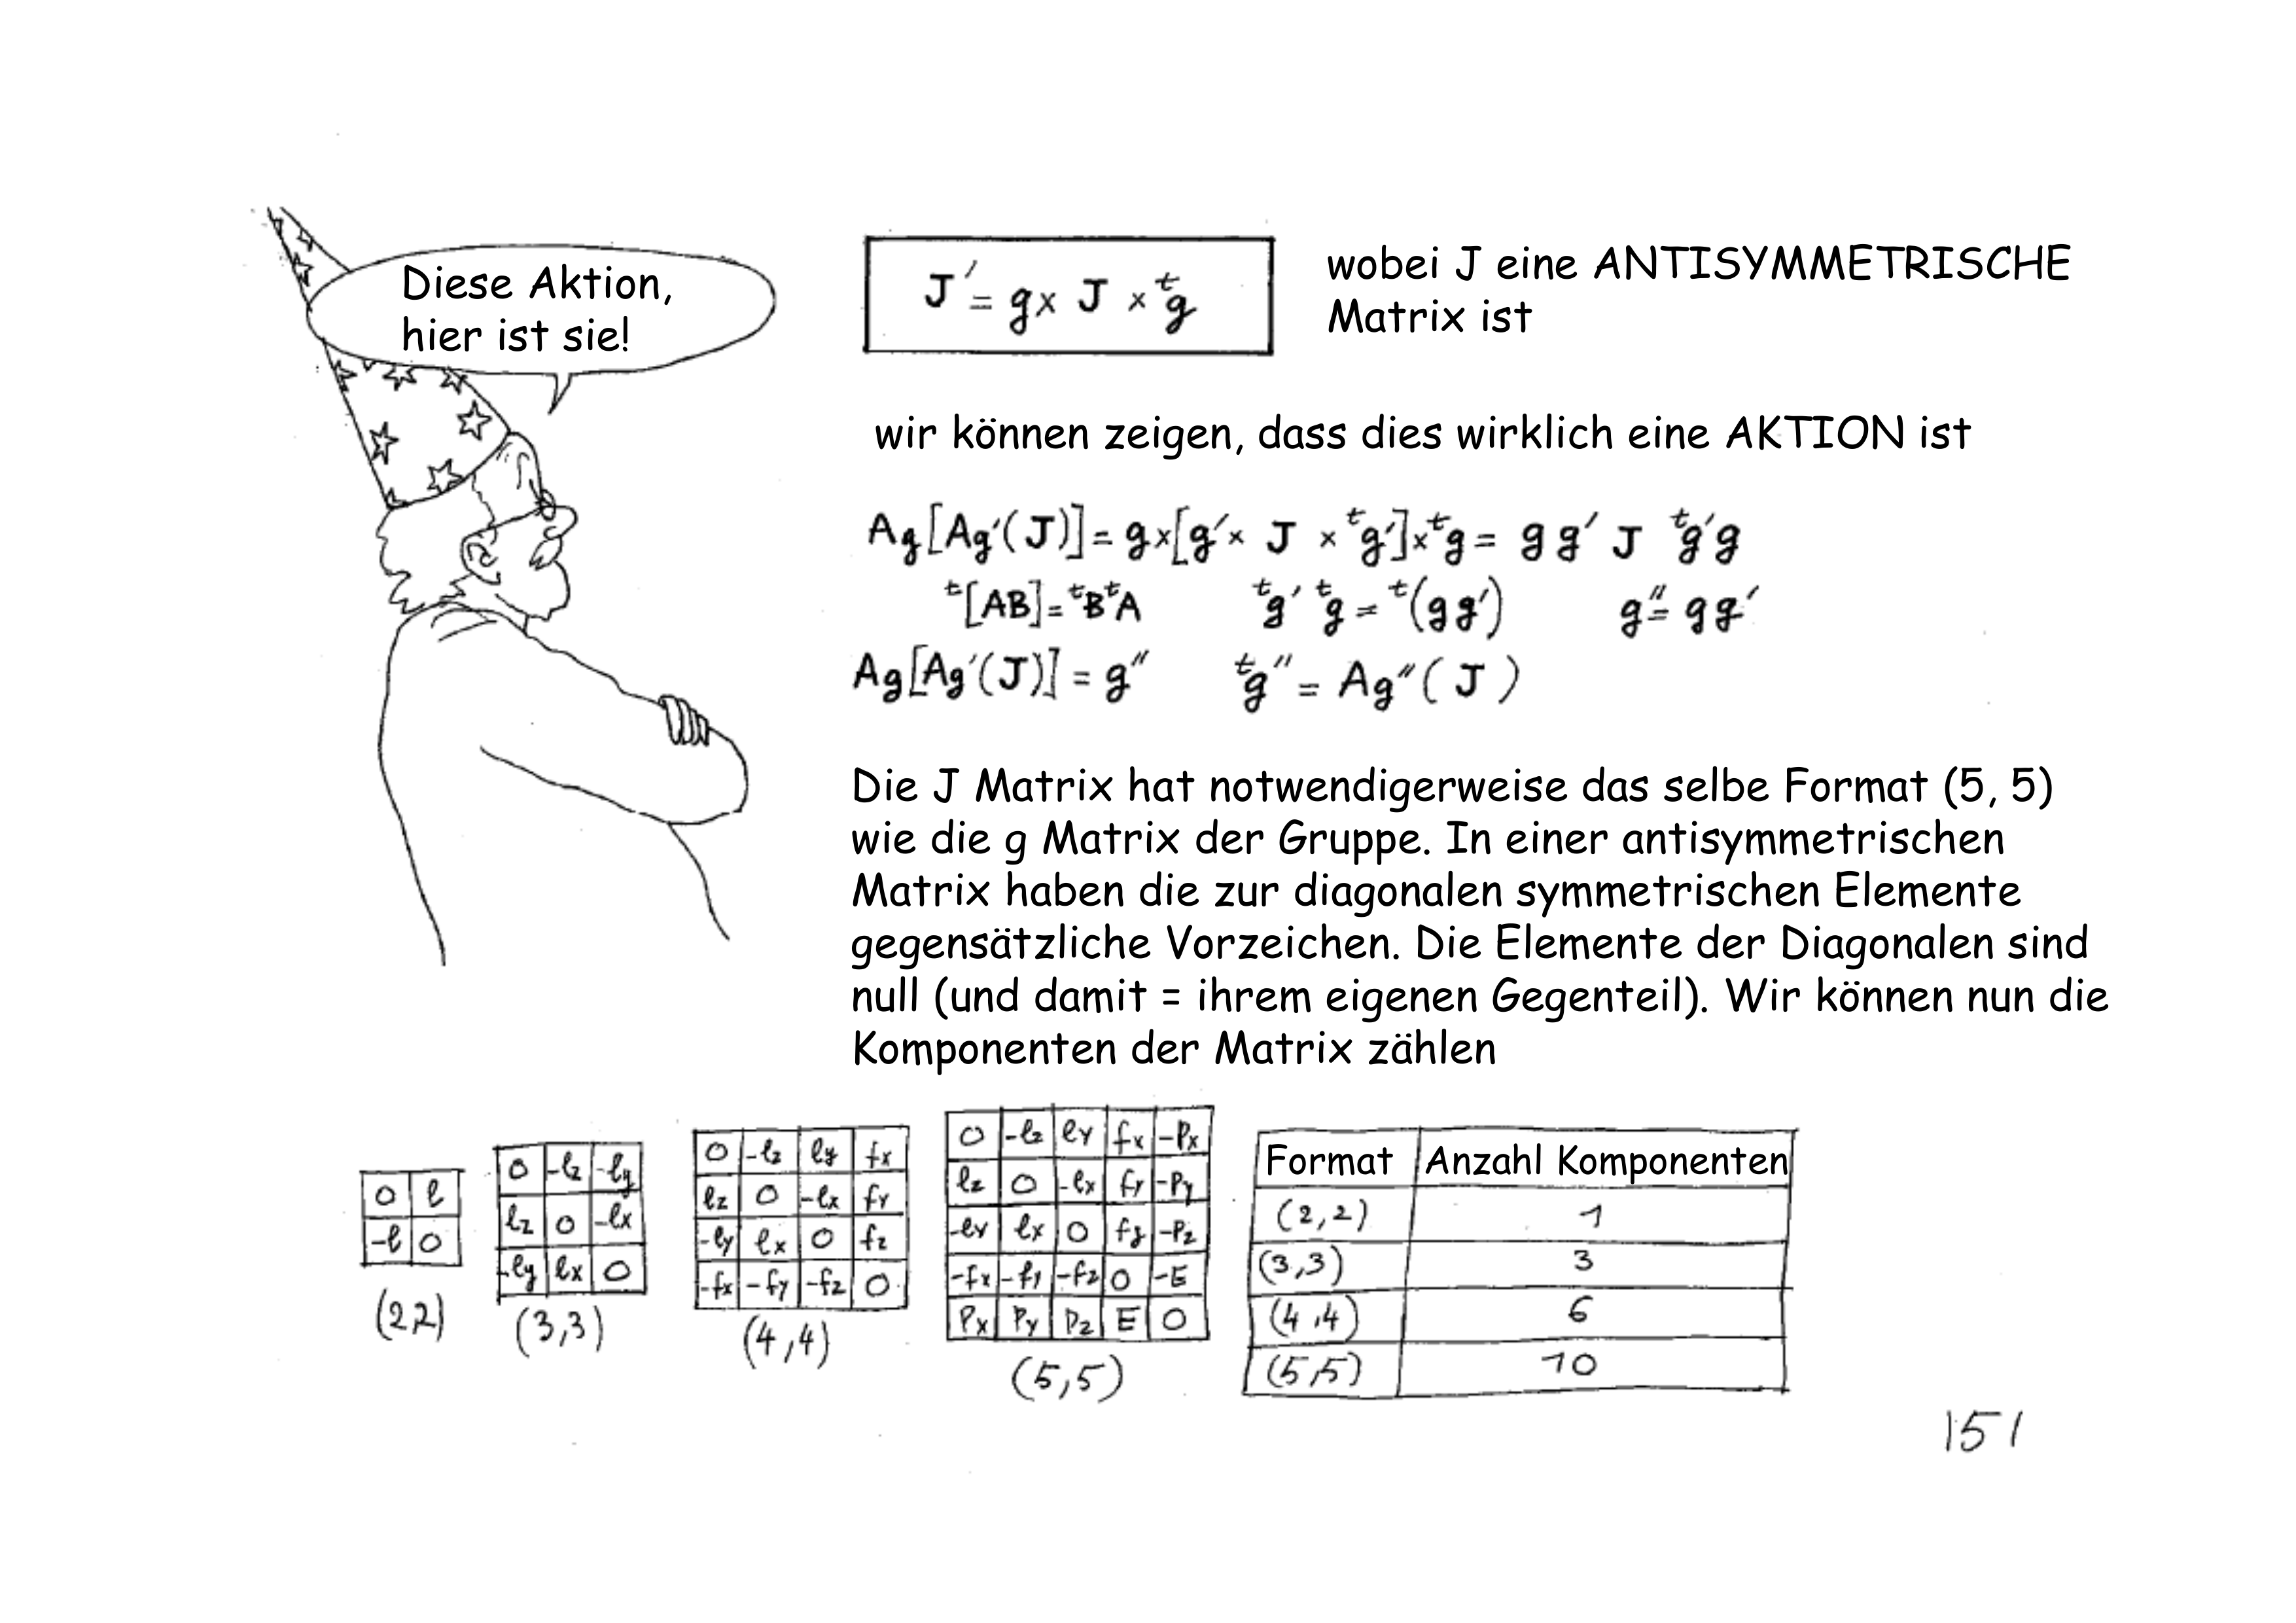 Diese Aktion,
hier ist sie!
J' = g × J × ᵗg
wobei J eine ANTISYMMETRISCHE
Matrix ist
wir können zeigen, dass dies wirklich eine AKTION ist
Ag[Ag'(J)] = g×[g'× J × ᵗg']×ᵗg = g g' J ᵗg'g
ᵗ[AB] = ᵗBᵗA ᵗg' ᵗg = ᵗ(gg') g'' = gg'
Ag[Ag'(J)] = g'' ᵗg'' = Ag''( J )
Die J Matrix hat notwendigerweise das selbe Format (5, 5)
wie die g Matrix der Gruppe. In einer antisymmetrischen
Matrix haben die zur diagonalen symmetrischen Elemente
gegensätzliche Vorzeichen. Die Elemente der Diagonalen sind
null (und damit = ihrem eigenen Gegenteil). Wir können nun die
Komponenten der Matrix zählen
0 ℓ
-ℓ 0
(2,2)
0 -ℓz -ℓy
ℓz 0 -ℓx
-ℓy ℓx 0
(3,3)
0 -ℓz ℓy fx
ℓz 0 -ℓx fy
-ℓy ℓx 0 fz
-fx -fy -fz 0
(4,4)
0 -ℓz ℓy fx -Px
ℓz 0 -ℓx fy -Py
-ℓy ℓx 0 fz -Pz
-fx -fy -fz 0 -E
Px Py Pz E 0
(5,5)
Format Anzahl Komponenten
(2,2) 1
(3,3) 3
(4,4) 6
(5,5) 10
151